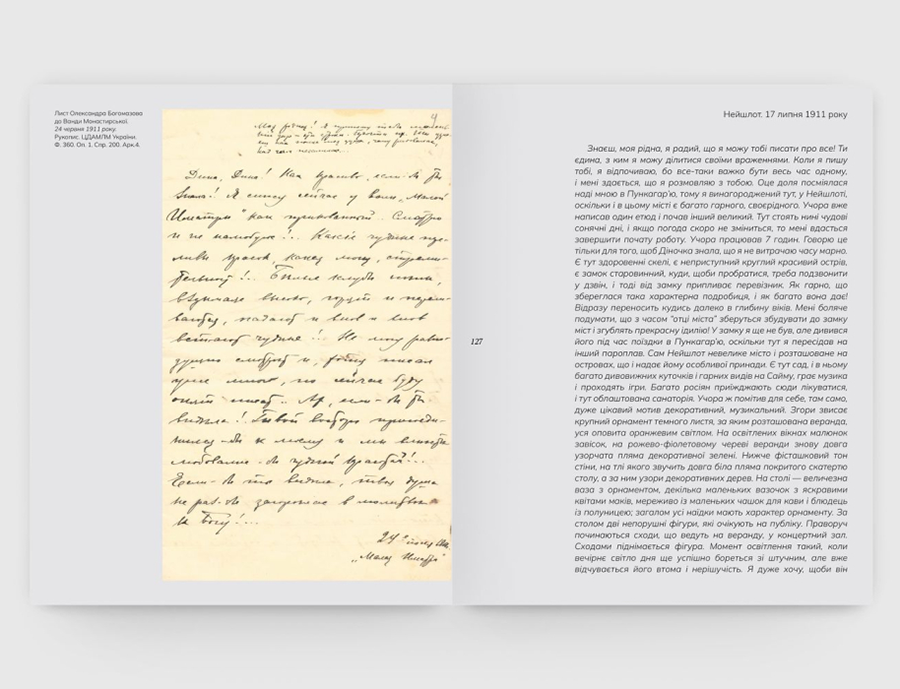 Лист Олександра Богомазова
до Ванди Монастирської.
24 червня 1911 року.
Рукопис. ЦДАМЛМ України.
Ф. 360. Оп. 1. Спр. 200. Арк.4.
Дина, Дина! Как красиво, если-бы ты
знала! Я сижу сейчас у воды „Малой
Иматры" как прикованный. Смотрю
и не налюбуюсь!.. Какие чудные
Белые клубы
высоко,
падают и вновь и вновь
встают чудные!! Не могу
смотреть и,
но сейчас буду
опять Ах, если-бы ты
видела! Твой восторг
бы к моему и мы вместе
любовались-бы чудной красотой!..
Если-бы ты видела, твоя душа
не раз-бы в молитве
к Богу!...
24
„Малая
127
Нейшлот. 17 липня 1911 року
Знаєш, моя рідна, я радий, що я можу тобі писати про все! Ти
єдина, з ким я можу ділитися своїми враженнями. Коли я пишу
тобі, я відпочиваю, бо все-таки важко бути весь час одному,
і мені здається, що я розмовляю з тобою. Оце доля посміялася
наді мною в Пункагар'ю, тому я винагороджений тут, у Нейшлоті,
оскільки і в цьому місті є багато гарного, своєрідного. Учора вже
написав один етюд і почав інший великий. Тут стоять нині чудові
сонячні дні, і якщо погода скоро не зміниться, то мені вдасться
завершити почату роботу. Учора працював 7 годин. Говорю це
тільки для того, щоб Діночка знала, що я не витрачаю часу марно.
Є тут здоровенні скелі, є неприступний круглий красивий острів,
є замок старовинний, куди, щоби пробратися, треба подзвонити
у дзвін, і тоді від замку припливає перевізник. Як гарно, що
збереглася така характерна подробиця, і як багато вона дає!
Відразу переносить кудись далеко в глибину віків. Мені боляче
подумати, що з часом "отці міста" зберуться збудувати до замку
міст і згублять прекрасну ідилію! У замку я ще не був, але дивився
його під час поїздки в Пункагар'ю, оскільки тут я пересідав на
інший пароплав. Сам Нейшлот невелике місто і розташоване на
островах, що і надає йому особливої принади. Є тут сад, і в ньому
багато дивовижних куточків і гарних видів на Сайму, грає музика
і проходять ігри. Багато росіян приїжджають сюди лікуватися,
і тут облаштована санаторія. Учора ж помітив для себе, там само,
дуже цікавий мотив декоративний, музикальний. Згори звисає
крупний орнамент темного листя, за яким розташована веранда,
уся оповита оранжевим світлом. На освітлених вікнах малюнок
завісок, на рожево-фіолетовому череві веранди знову довга
узорчата пляма декоративної зелені. Нижче фісташковий тон
стіни, на тлі якого звучить довга біла пляма покритого скатертю
столу, а за ним узори декоративних дерев. На столі — величезна
ваза з орнаментом, декілька маленьких вазочок з яскравими
квітами маків, мереживо із маленьких чашок для кави і блюдець
із полуницею; загалом усі наїдки мають характер орнаменту. За
столом дві непорушні фігури, які очікують на публіку. Праворуч
починаються сходи, що ведуть на веранду, у концертний зал.
Сходами піднімається фігура. Момент освітлення такий, коли
вечірнє світло дня ще успішно бореться зі штучним, але вже
відчувається його втома і нерішучість. Я дуже хочу, щоби він